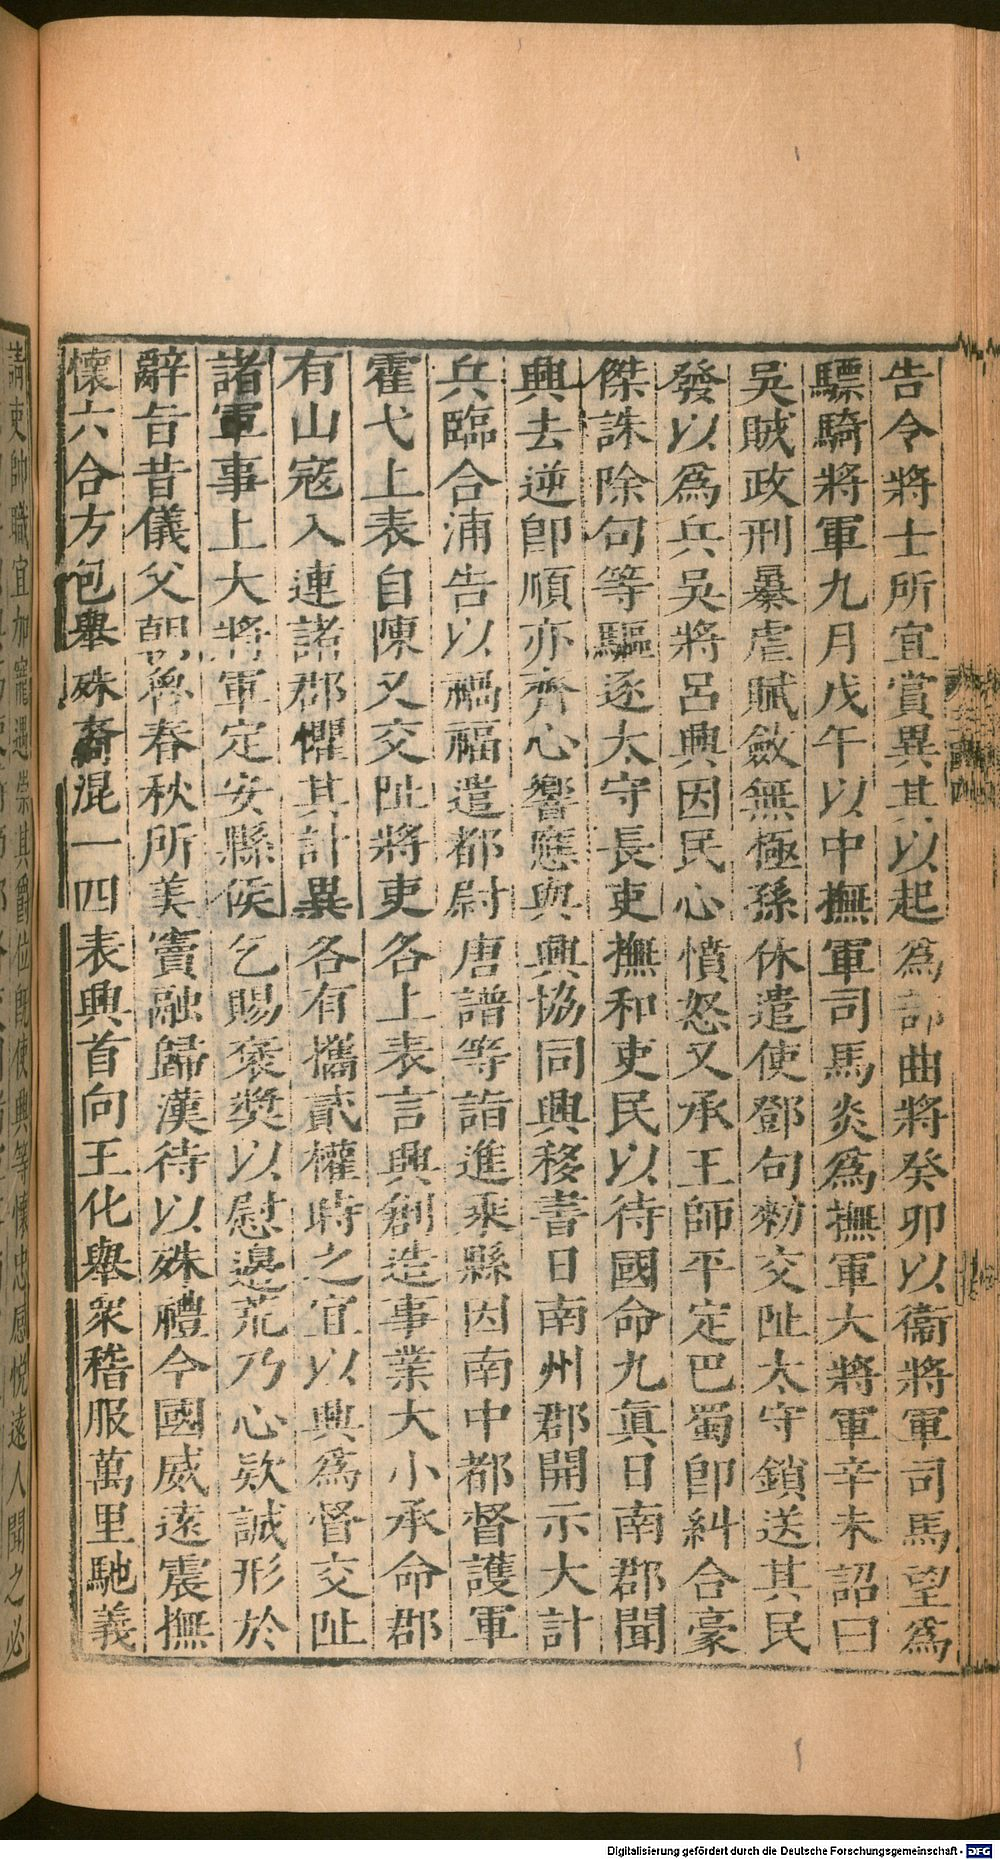 告令將士所宜賞異其以起爲部曲將癸卯以衞將軍司馬望爲
驃騎將軍九月戊午以中撫軍司馬炎爲撫軍大將軍辛未詔曰
吳賊政刑暴虐賦斂無極孫休遣使鄧句勑交阯太守鎖送其民
發以爲兵吳將呂興因民心憤怒又承王師平定巴蜀卽糾合豪
傑誅除句等驅逐太守長吏撫和吏民以待國命九眞日南郡聞
興去逆卽順亦齊心響應與興協同興移書日南州郡開示大計
兵臨合浦告以禍福遣都尉唐譜等詣進乘縣因南中都督護軍
霍弋上表自陳又交阯將吏各上表言興創造事業大小承命郡
有山寇入連諸郡懼其計異各有攜貳權時之宜以興爲督交阯
諸軍事上大將軍定安縣侯乞賜褒奬以慰邊荒乃心款誠形於
辭旨昔儀父朝魯春秋所美竇融歸漢待以殊禮今國威遠震撫
懷六合方包舉殊裔混一四表興首向王化舉衆稽服萬里馳義
請吏帥職宜加寵遇崇其爵位旣使興等懷忠感悅遠人聞之必
Digitalisierung gefördert durch die Deutsche Forschungsgemeinschaft - DFG